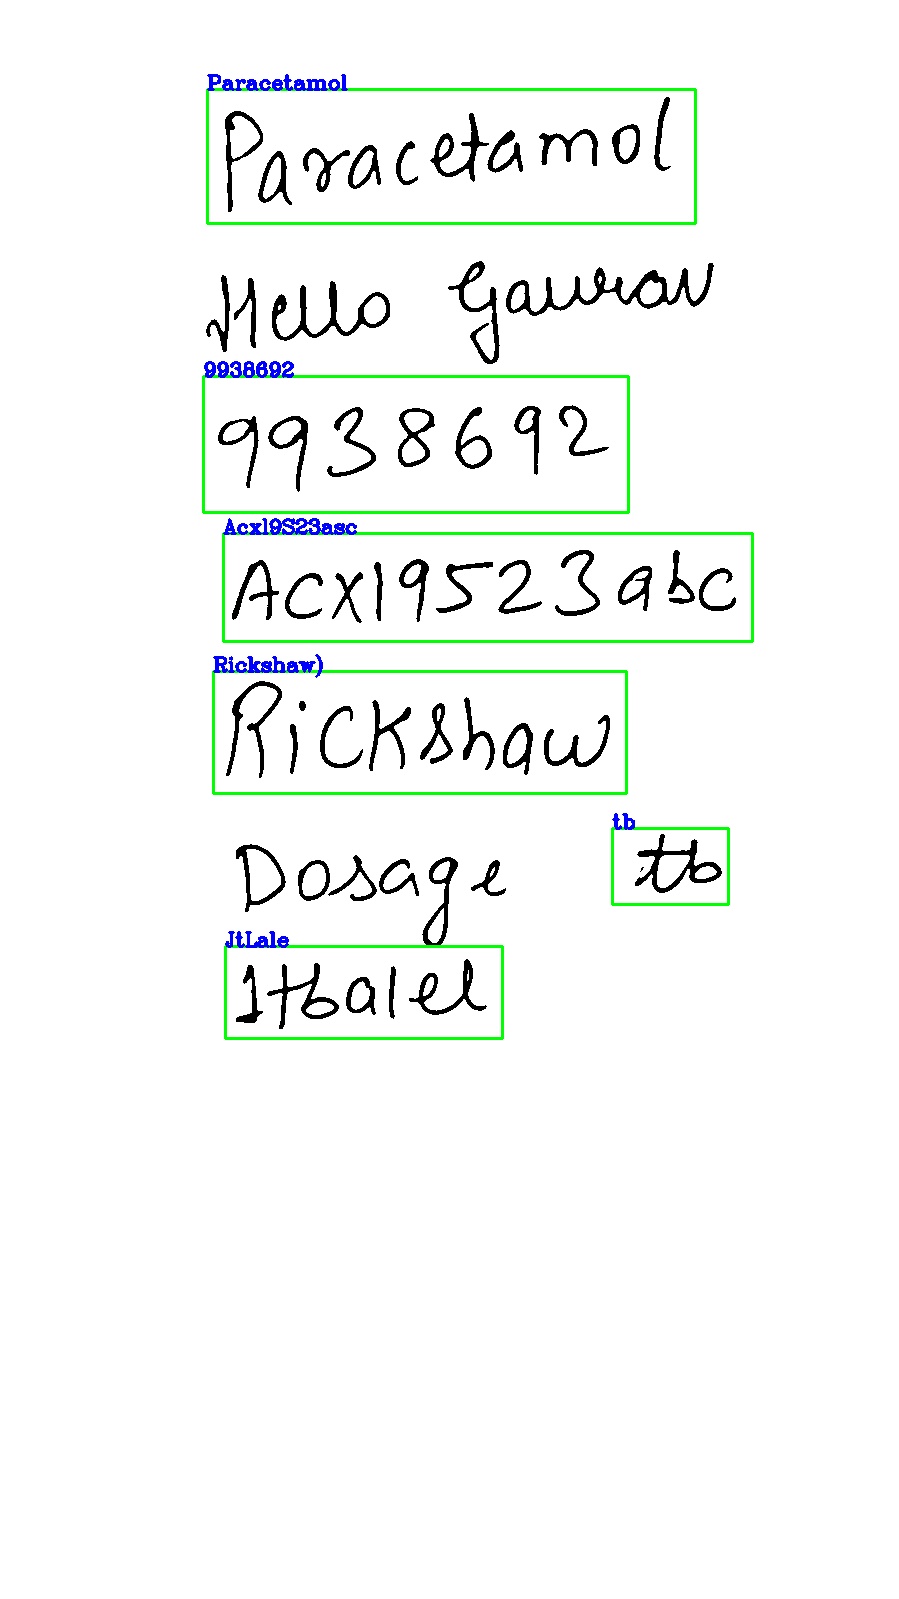 Paracetamol
Paracetamol
Hello Gaurav
9938692
9938692
Acx19S23asc
Acx19523abc
Rickshaw)
Rickshaw
tb
Dosage tb
JtLale
1tbalel